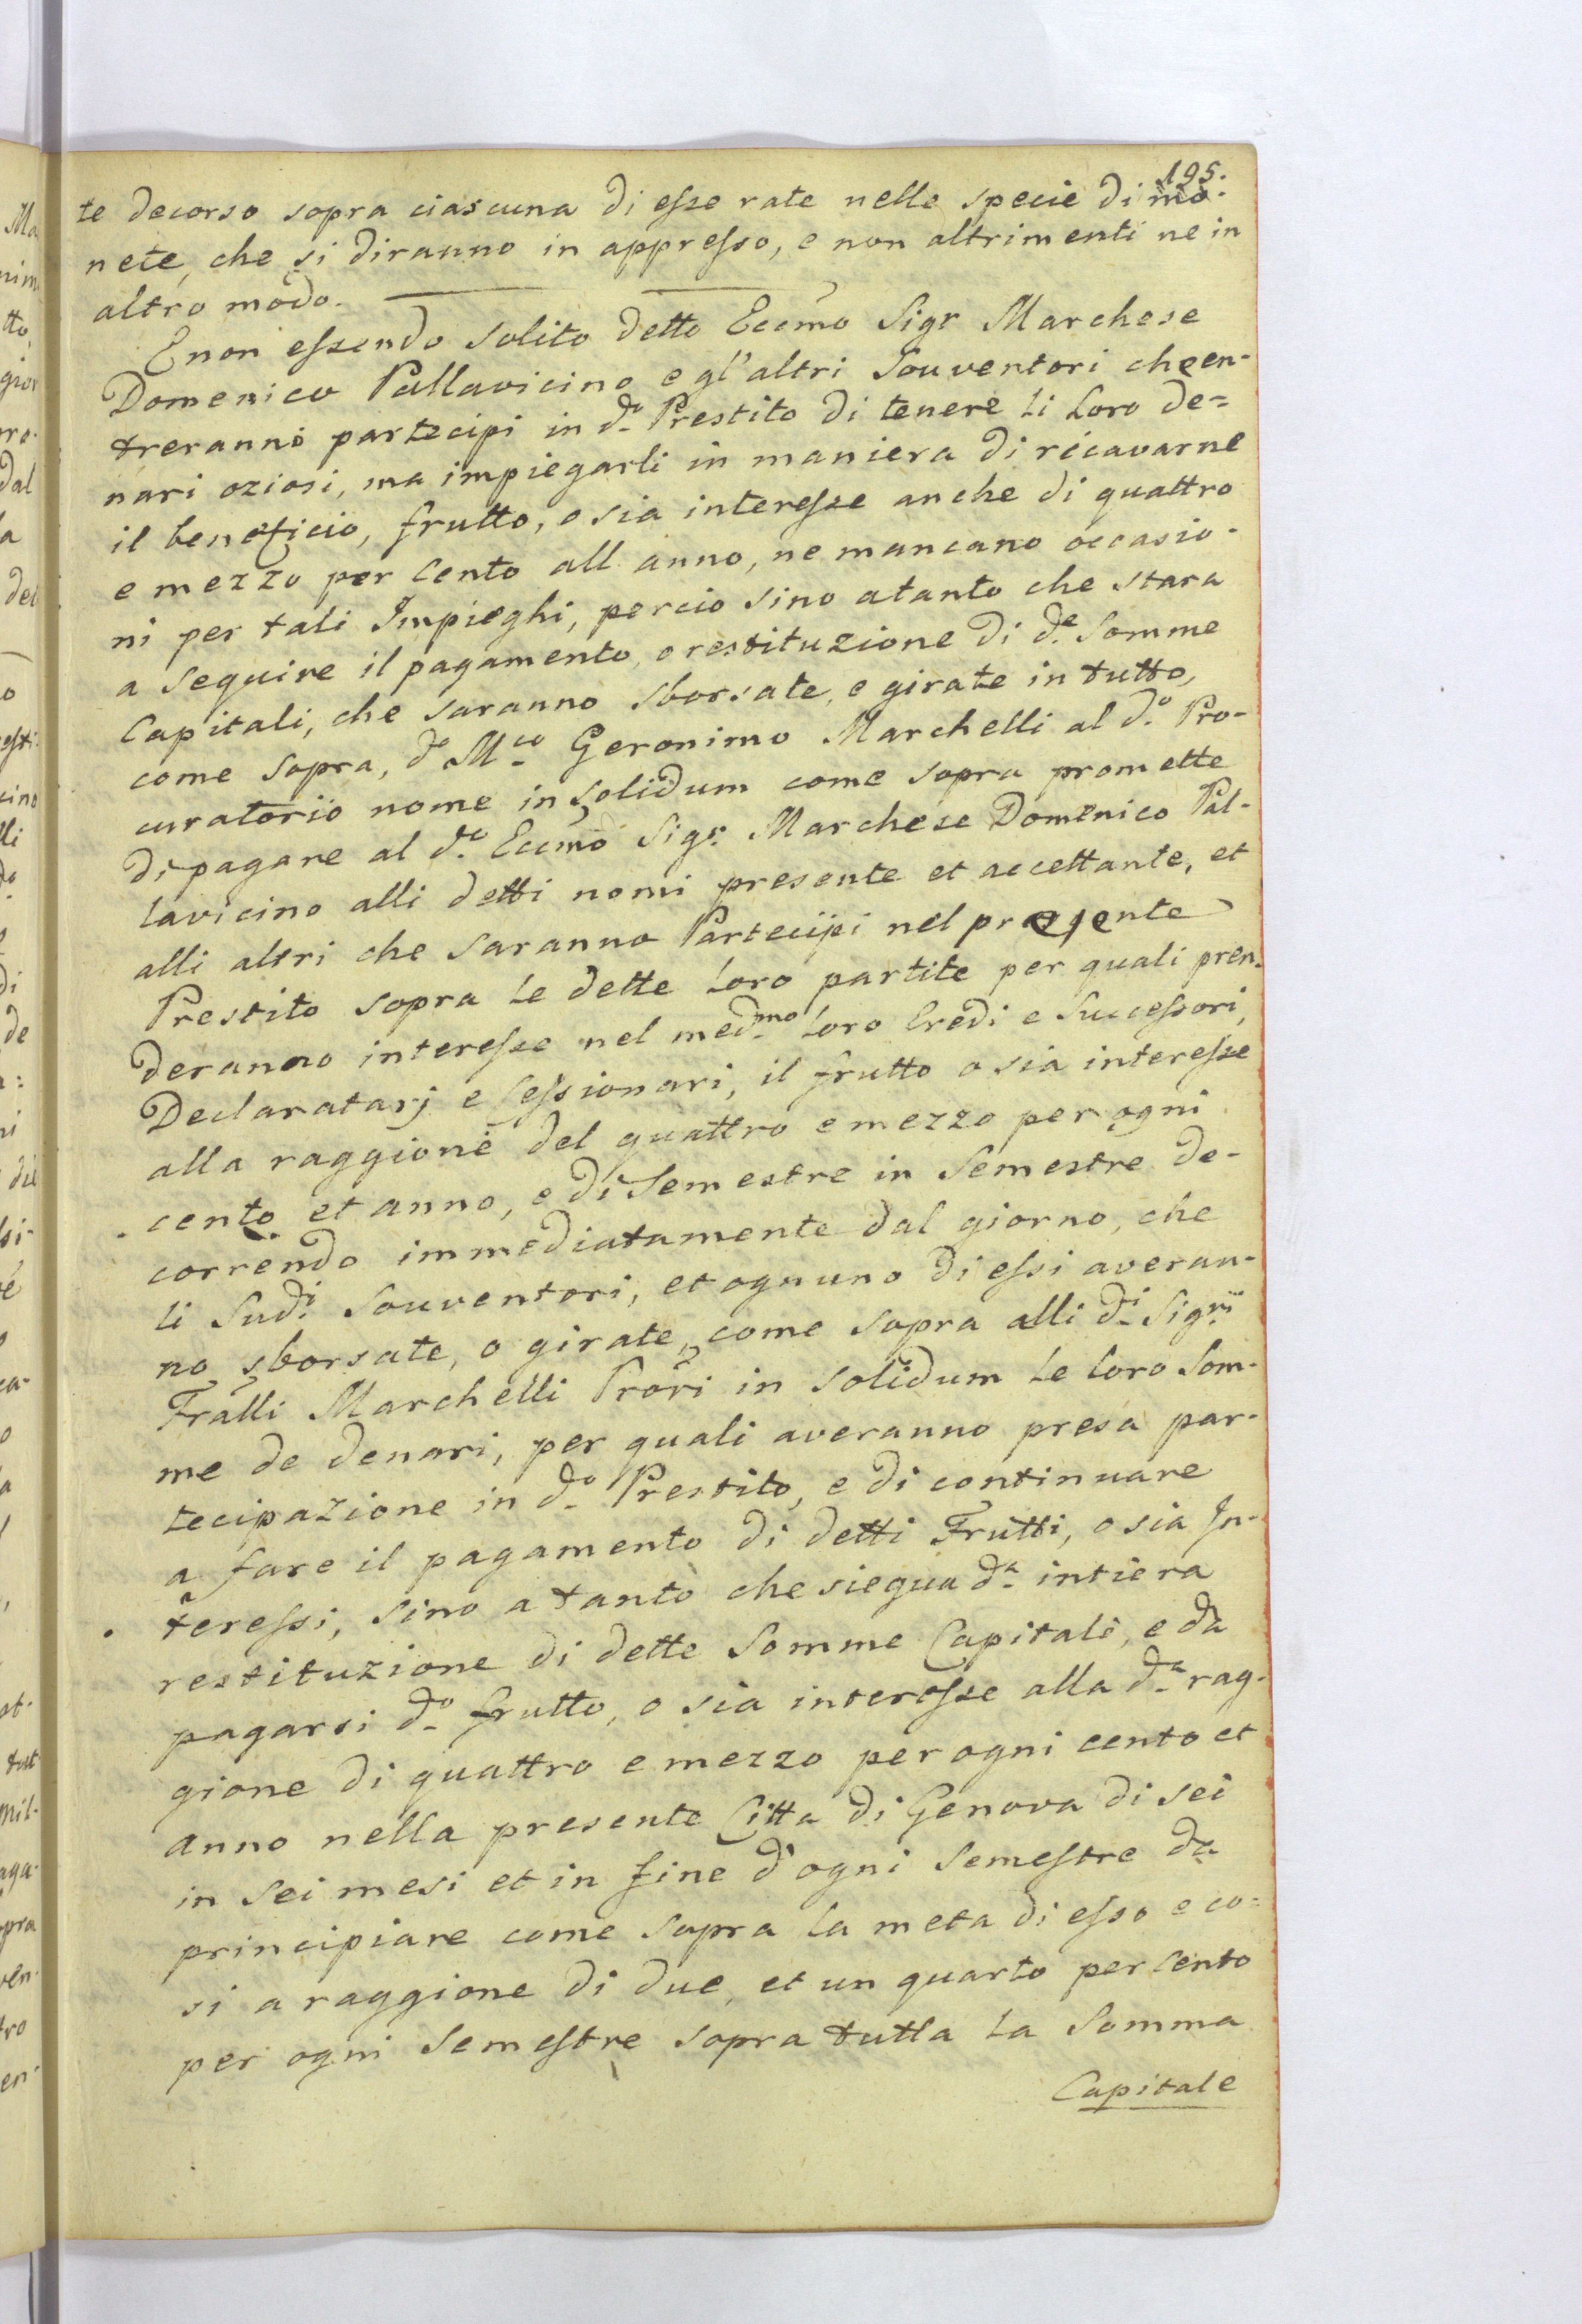 195.
te decorso sopra ciascuna di esse rate nelle specie di mo-
nete, che si diranno in appresso, e non altrimenti ne in
altro modo.
E non essendo solito detto Eccmo Sigr Marchese
Domenico Pallavicino e gl'altri Souventori che en-
treranno partecipi in do. Prestito di tenere li loro de=
nari oziosi, ma impiegarli in maniera di ricavarne
il beneficio, frutto, o sia interesse anche di quattro
e mezzo per Cento all anno, ne mancano occasio-
ni per tali Impieghi, percio sino a tanto che stara
a seguire il pagamento, o restituzione di de. Somme
Capitali, che saranno sborsate, e girate in tutto,
come sopra, do Mco. Geronimo Marchelli al do. Pro-
curatorio nome in solidum come sopra promette
di pagare al do. Eccmo Sigr. Marchese Domenico Pal-
lavicino alli detti nomi presente et accettante, et
alli altri che saranno Partecipi nel presente
Prestito sopra le dette loro partite per quali pren-
deranno interesse nel medmo. loro Eredi e Successori,
Declaratarj e Cessionari, il frutto o sia interesse
alla raggione del quattro e mezzo per ogni
cento et anno, e di Semestre in Semestre de-
correndo immediatamente dal giorno, che
li Sudi. Souventori, et ognuno di essi averan-
no sborsate, o girate, come sopra alli di. Sigri.
Fralli Marchelli Prori in solidum le loro Som-
me de denari, per quali averanno presa par-
tecipazione in do. Prestito, e di continuare
a fare il pagamento di detti Frutti, o sia In-
teressi, sino a tanto che siegua da. intiera
restituzione di dette Somme Capitali, e da
pagarsi do. frutto, o sia interesse alla da. rag-
gione di quattro e mezzo per ogni cento et
anno nella presente Citta di Genova di sei
in sei mesi et in fine d'ogni semestre da
principiare come sopra la meta di esso e co=
si a raggione di due, et un quarto per Cento
per ogni Semestre sopra tutta la Somma
Capitale